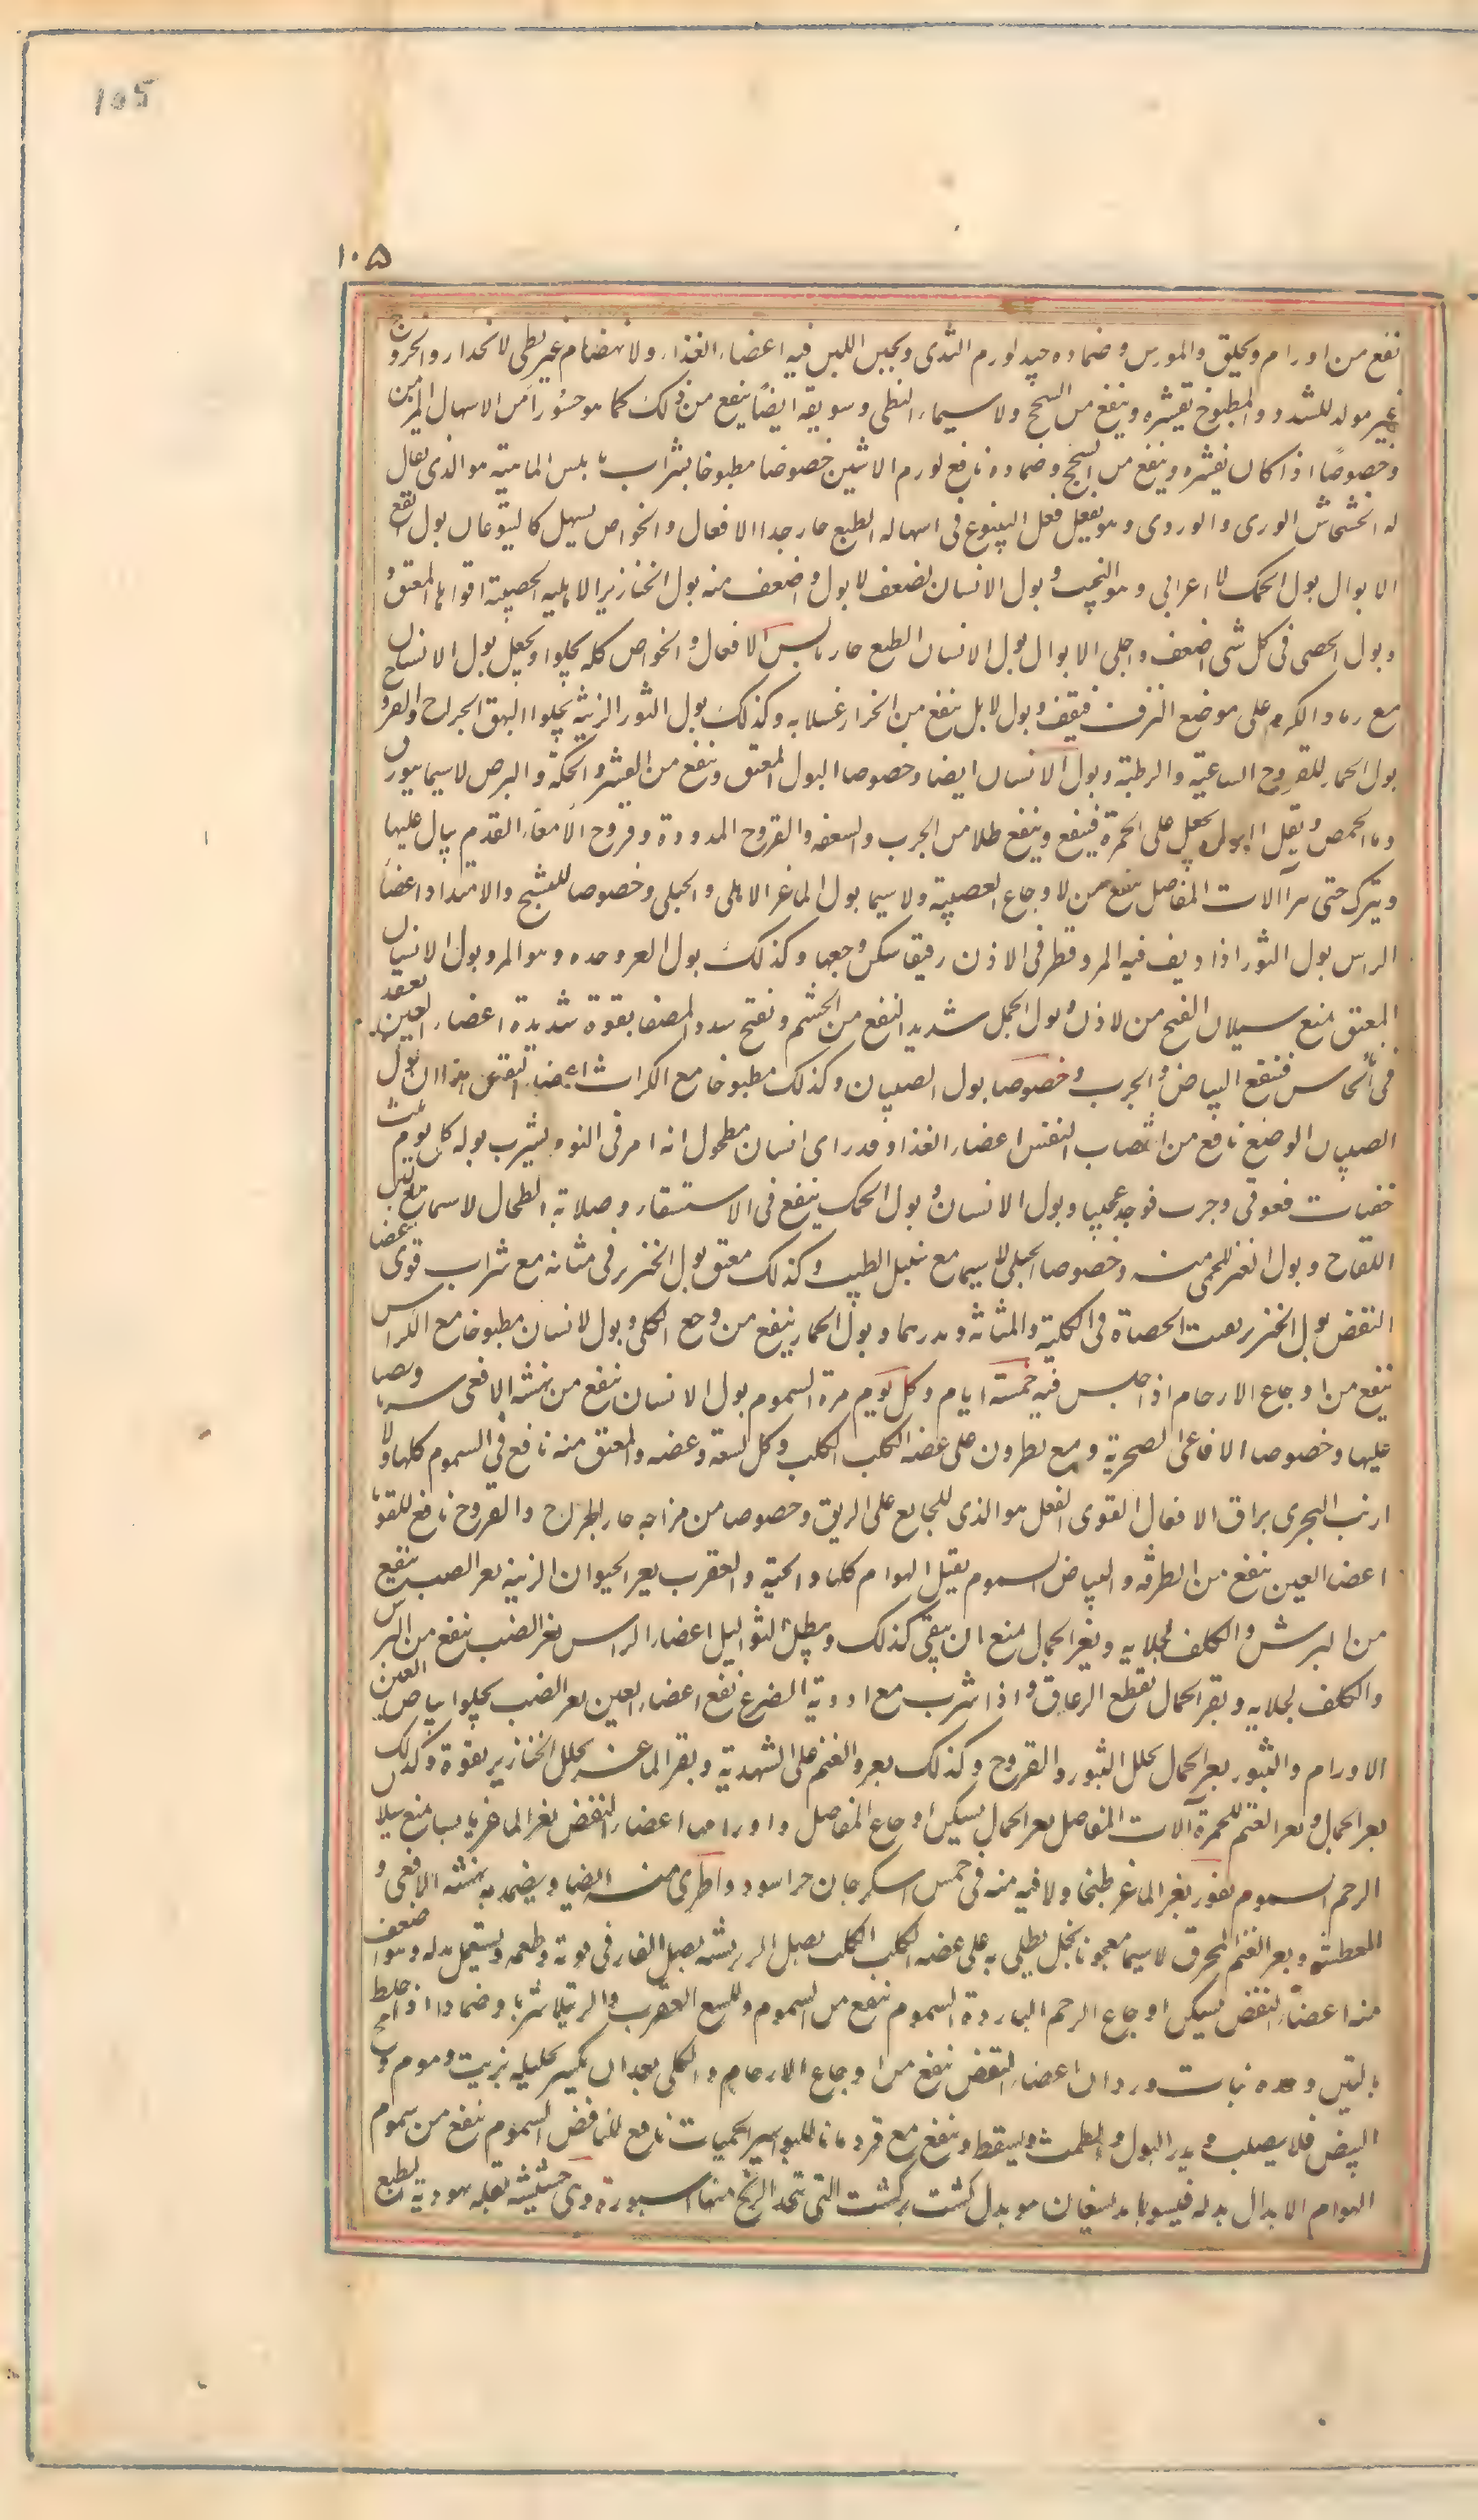 105
١٠٥
نفع من اورام وبحلق والمورس وضماده جيد لورم الثدى وبجبس اللبس فيه اعضاء الغذاء ولانهضام غير بطى لانحدار والخروج
غير مولد للشدد والمطبوخ تقيشره وينفع من السحج ولا سيماء النطى وسويقه ايضًا ينفع من ذلك كما هو حسوراَس الاسهال المزمن
وخصوصًا اذا كان بقشره وينفع من السحج وضماده نافع لورم الانثيين خصوصًا مطبوخا بشراب بلبس الماهيته هو الذى يقال
له الخشخاش الورى والوردى وهو يفعل فعل اليتوع فى اسهاله الطبع حار جدا الافعال والخواص يسهل كاليتوعات بول انفع
الابوال بول الجمل لاعرابى وهو النجيب وبول الانسان اضعف لابول واضعف منه بول الخنازير الاهليه الخصيته اقواها المعتق و
وبول الخصى فى كل شى اضعف واجلى الابوال بول الانسان الطبع حار يابس الافعال والخواص كله يجلوا ويجعل بول الانسان
مع رماد الكرم على موضع النزف فيقف وبول لابل ينفع من الحزاز غسلا به وكذلك بول الثور الزينة يجلوا البهق الجراح والقروح
بول الحمار للقروح الساعية والرطبة وبول الانسان ايضا وخصوصا البول المعتق وينفع من القشر والحكة والبرص لاسيما ببورق
وماء الحمص وثقل البول يجعل على الحمرة فينفع وينفع طلا من الجرب والسعفه والقروح المدودة وقروح الامعاَء القدم يبال عليها
ويترك حتى يبرا آلات المفاصل ينفع من لاوجاع العصبية ولا سيما بول الماغز الاهلى والجبلى وخصوصا للتشنج والامتداد اعضاَ
الراس بول الثور اذا ديف فيه المر وقطر فى الاذن رفيقا سكن وجعها وكذلك بول العز وحده وهو المر وبول الانسان
المعتق منع سيلان القيح من لاذن وبول الجمل شديد النفع من الخشم ونفتح سدد المصفا بقوة شديدة اعضاء العين يعقد
فى نحاس فينفع البياض والجرب وخصوصا بول الصبيان وكذلك مطبوخا مع الكراث اعضاء النفس هذا ان بول
الصبيان الوضع نافع من انتصاب النفس اعضاء الغذا وقد راى انسان مطحول انه امر فى النوم بشرب بوله كل يوم ثلث
حفنات فعوفى وجرب فوجد عجيبا وبول الانسان وبول الجمل ينفع فى الاستسقاء وصلابة الطحال لاسيما مع لبن
اللقاح وبول الغنز للحمى منه وخصوصا الجبلى لاسيما مع سنبل الطيب وكذلك معتق بول الخنزير فى مثانه مع شراب قوى اعضا
النفض بول الخنزير يفت الحصاة فى الكلية والمثانة ويدرهما وبول الحمار ينفع من وجع الكلى وبول لانسان مطبوخا مع الكراس
ينفع من اوجاع الارحام اذ اجلس فيه خمسة ايام وكل يوم مرة السموم بول الانسان ينفع من نهشه الافعى شربا وصبا
عليها وخصوصا الافاعى الصخرية ومع نطرون على عضه الكلب الكلب وكل لسعة وعضه والمعتق منه نافع فى السموم كلها ولا
ارنب البحرى بزاق الافعال القوى الفعل هو الذى للجايع على الريق وخصوصا من مزاجه حار الجراح والقروح نافع للقوبا
اعضا العين ينفع من الطرفه والبياض السموم يقتل الهوام كلها والحية والعقرب بعر الحيوان الزينه بعر الضب ينفع
من البرش والكلف لجلايه وبعر الجمال منع ان يبقى كذلك ويبطل الثوآليل اعضاء الراس بعر الضب ينفع من البرش
والكلف لجلايه وبعر الجمال يقطع الرعاف واذا شرب مع ادوية الصرع نفع اعضاء العين بعر الضب يجلوا بياض العين
الاورام والبثور بعر الجمال يحلل البثور والقروح وكذلك بعر والغنم على الشهدية وبعر الماعز يحلل الخنازير بقوة وكذلك
بعر الجمال وبعر الغنم للحمرة آلات المفاصل بعر الجمال يسكن اوجاع المفاصل واورامها اعضاء النفض بعر الماغز يابسا منع سيلان
الرحم السموم يغور بعر الماغز طبخا ولا فيه منه فى خمس اسكرجان خر اسود واطرى منه ايضا ويضمد به نهشه الافعى و
المعطشه وبعر الغنم المحرق لاسيما معجونا بخل يطلى به على عضه الكلب الكلب بصل الزير بشه بصل الفار فى قوته وطعمه ويستعمل بدله وهو اضعف
منه اعضاَ النفض يسكن اوجاع الرحم الباردة السموم ينفع من السموم وللسع العقرب والرتيلا شربا وضمادا اذ اخلط
بالتين وحده نبات وردان اعضاء النفض ينفع من اوجاع الارحام والكلى بعدان يكسر بخليله بزيت وموم ومح
البيض فلا يصلب ويدر البول والطمث ويسقط وينفع مع قردمانا للبواسير الحميات نافع للنافض السموم ينفع من سموم
الهوام الابدال بدله فيسوبا بدليغان هو بدل كشت بركشت التى تتخد الزنج منها اسبورة وى حشيشه نقله سهودية الطبع